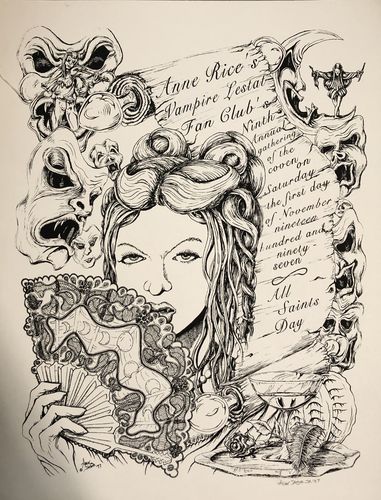 Anne Rice's
Vampire Lestat
Fan Club's
Ninth
annual
gathering
of the
coven on
Saturday
the first day
of November
nineteen
hundred and
ninety-
seven
All
Saints
Day